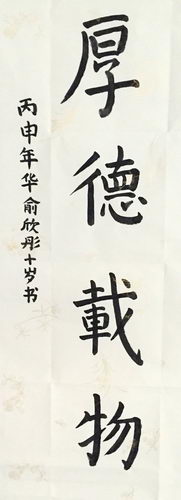 厚德載物
丙申年华俞欣彤十岁书